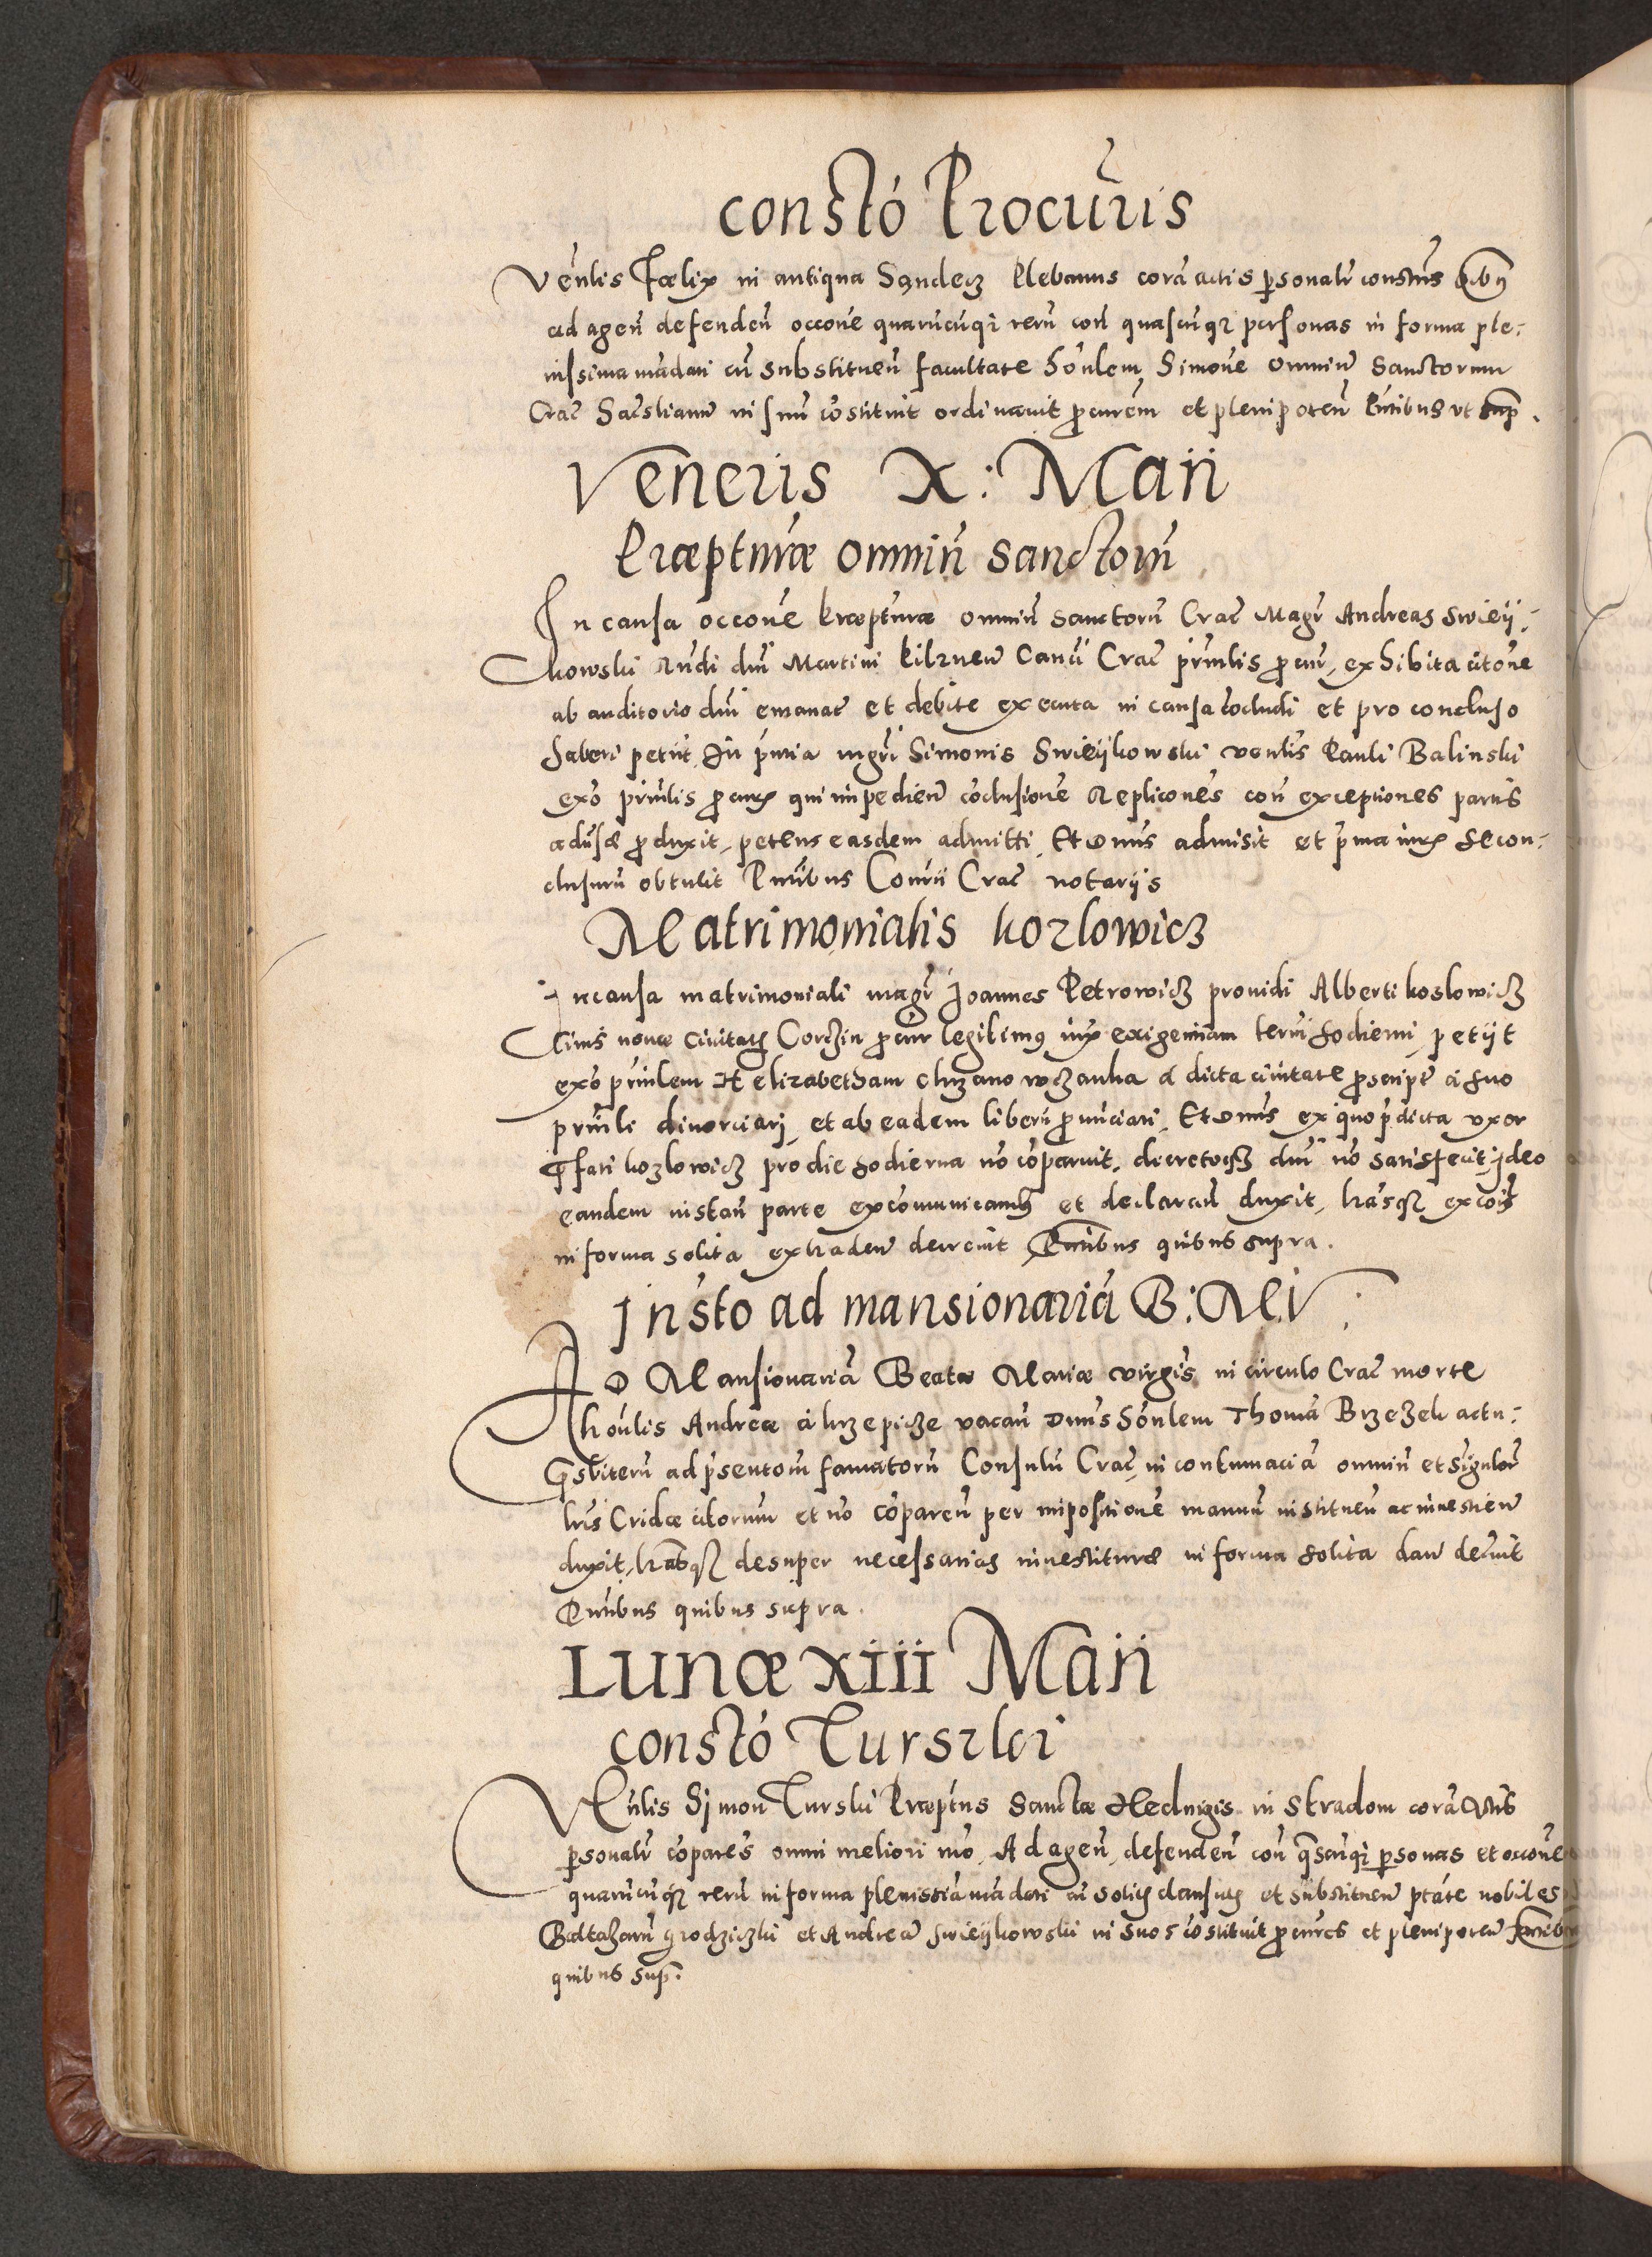 constó Procuris
Venlis Fælix in antiqua Sandecz Plebanus corã actis psonalr constus
ad agen̄ defenden̄ occone quarũcũqȝ rerũ con̄ quascũqȝ personas in forma ple:
nissima mãdati cũ substituen̄ facultate honlem Simonẽ Omniũ Sanctorum
Crac̄ in suũ cõstituit ordinavit procurem et plenipoten̄ Pñtibus vt sup.
Veneris X: Maii
Præpturæ omniũ sanctorũ
In causa occone Præpturæ omniũ sanctorũ Crac̄ Magr̄ Andreas Swięij:
kowski Rñdi dñi Martini Canci Crac̄ prñilis procur, exhibita citone
ab auditorio dñi emanat̄ et debite executa in causa cõcludi et pro concluso
haberi petiit. In pñtia mgrī Simonis Swięijkowski venlis Pauli Balinski
exo prñlis procuris qui impedien̄ cõclusionẽ Replicones con̄ exceptiones partis
aduersæ produxit, petens easdem admitti. Et Dnus admisit et
clusurũ obtulit Pñtibus Consrii Crac̄ notarijs
Matrimonialis kozlowicz
In causa matrimoniali magr̄ Joannes Petrowicz prouidi Alberti koslowicz
Civis nouæ Ciuitatis Corczin procur legitimus iux exigentiam termi hodierni, petijt
exo prñlem Helizabetham chrzanowczanka a dicta ciuitate proscripte a suo
prñli divorciari, et ab eadem liberũ pronũciari. Et Dnus ex quo pdicta vxor
pfati kozlowicz pro die hodierna nõ cõparuit, decretoqȝ dñi nõ satisfecit, ideo
eandem instan̄ parte excõmunicam et declarand duxit, lrasqȝ excois
in forma solita extraden̄ decreuit Pñtibus quibus supra.
Insto ad mansionariã B: M V:
AD Mansionariã Beatæ Mariæ virgis in circulo Crac̄ morte
honlis Andreæ a krzepicze vacan̄ Dnus honlem Thomã Brzezek actu:
psbiterũ ad psentom famatorũ Consulũ Crac̄, in contumaciã omniũ et singulor
lris Cridæ citorum et nõ cõparen̄ per impositionẽ manuũ instituen̄ ac inuestien̄
duxit, lrasqȝ desuper necessarias inuestituræ in forma solita dan̄ decreuit
Pñtibus quibus supra.
Lunæ XIII Maii
constó Turszki
Vnlis Simon Turski Præptus Sanctæ Hedvigis in Stradom corã Actis
psonalr cõpares omni meliori mõ. Ad agen̄, defenden̄ con̄ quascũqȝ psonas et occone
quarũcũqȝ rerũ in forma plenissiã mãdati cũ solitis clausulis et substituen̄ ptate nobiles
Baltazarũ grodziczki et Andreã swięijkowski in suos cõstituit procures et plenipoten̄ Pñtibus
quibus sup: